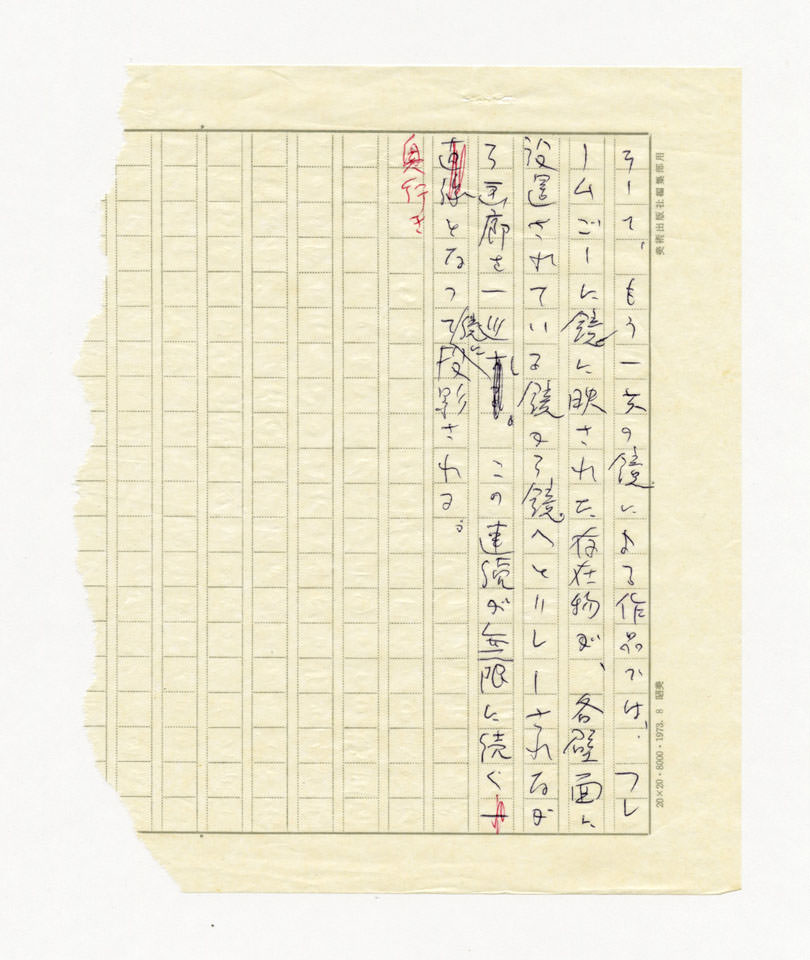 美術出版社編集部用
20×20・8000・1973. 8
そして、もう一方の鏡による作品では、フレ
ームごとに鏡に映された存在物が、各壁面に
設置されている鏡から鏡へとリレーされなが
ら画廊を一巡し。この連続が無限に続く
となって鏡に投影される。
奥行き